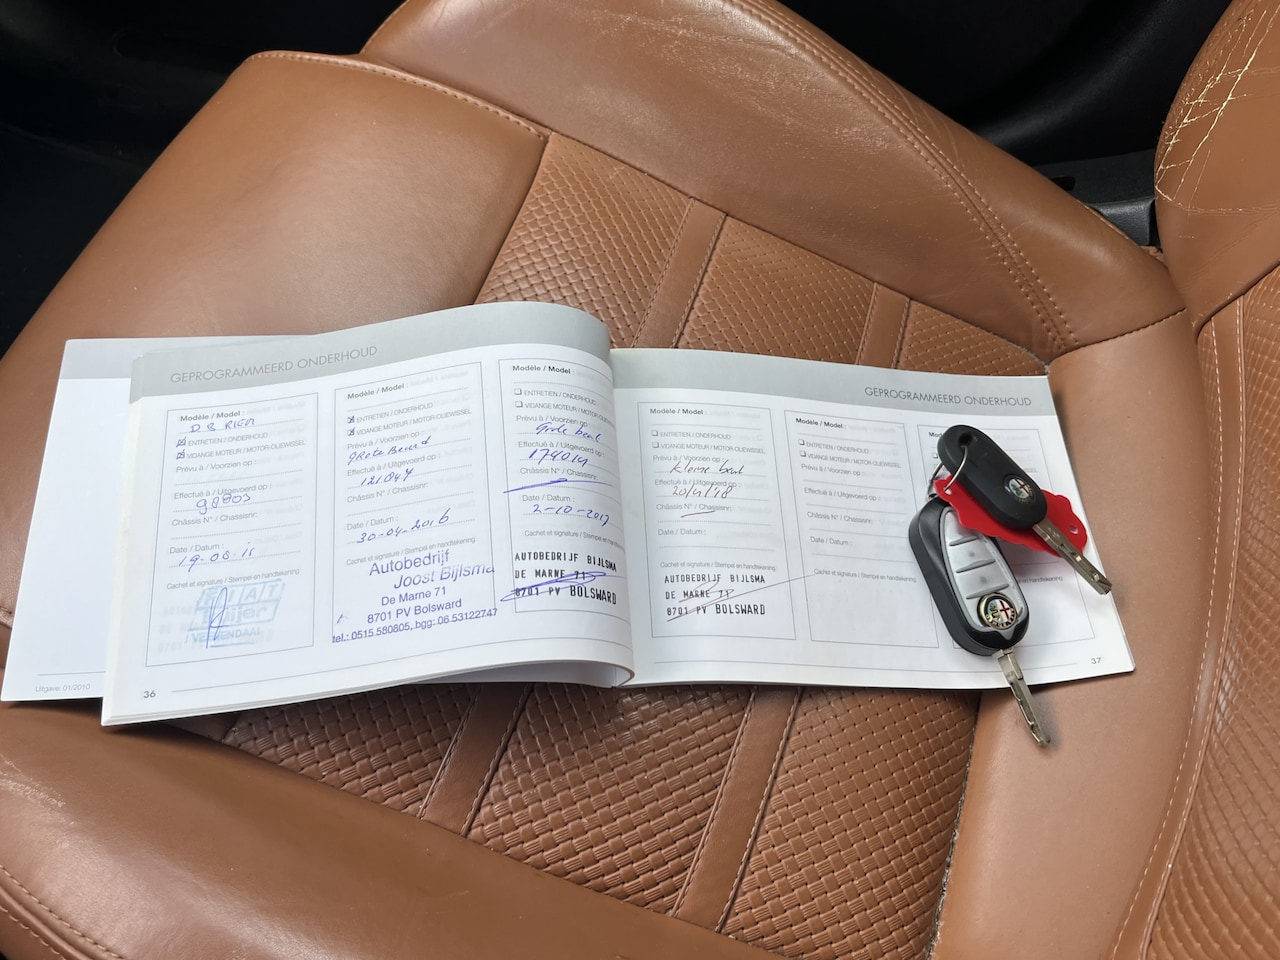 GEPROGRAMMEERD ONDERHOUD
Modèle / Model :
D.B RIEM
ENTRETIEN / ONDERHOUD
VIDANGE MOTEUR / MOTOR-OLIEWISSEL
Prévu à / Voorzien op :
Effectué à / Uitgevoerd op :
98803
Châssis N° / Chassisnr:
Date / Datum :
19-06-15
Cachet et signature / Stempel en handtekening
FIAT
VEENENDAAL
Modèle / Model :
ENTRETIEN / ONDERHOUD
VIDANGE MOTEUR / MOTOR-OLIEWISSEL
Prévu à / Voorzien op :
grote Beurt
Effectué à / Uitgevoerd op :
121.047
Châssis N° / Chassisnr:
Date / Datum :
30-04-2016
Cachet et signature / Stempel en handtekening
Autobedrijf
Joost Bijlsma
De Marne 71
8701 PV Bolsward
tel.: 0515 580805, bgg: 06 53122747
Modèle / Model :
ENTRETIEN / ONDERHOUD
VIDANGE MOTEUR / MOTOR-OLIEWISSEL
Prévu à / Voorzien op :
Grote beurt
Effectué à / Uitgevoerd op :
Châssis N° / Chassisnr:
Date / Datum :
2-10-2017
Cachet et signature / Stempel en handtekening
AUTOBEDRIJF BIJLSMA
DE MARNE 71
8701 PV BOLSWARD
36
Uitgave: 01/2010
GEPROGRAMMEERD ONDERHOUD
Modèle / Model :
ENTRETIEN / ONDERHOUD
VIDANGE MOTEUR / MOTOR-OLIEWISSEL
Prévu à / Voorzien op :
kleine beurt
Effectué à / Uitgevoerd op :
20/4/18
Châssis N° / Chassisnr:
Date / Datum :
Cachet et signature / Stempel en handtekening
AUTOBEDRIJF BIJLSMA
DE MARNE 71
8701 PV BOLSWARD
Modèle / Model :
ENTRETIEN / ONDERHOUD
VIDANGE MOTEUR / MOTOR-OLIEWISSEL
Prévu à / Voorzien op :
Effectué à / Uitgevoerd op :
Châssis N° / Chassisnr:
Date / Datum :
Cachet et signature / Stempel en handtekening
Modèle / Model
37